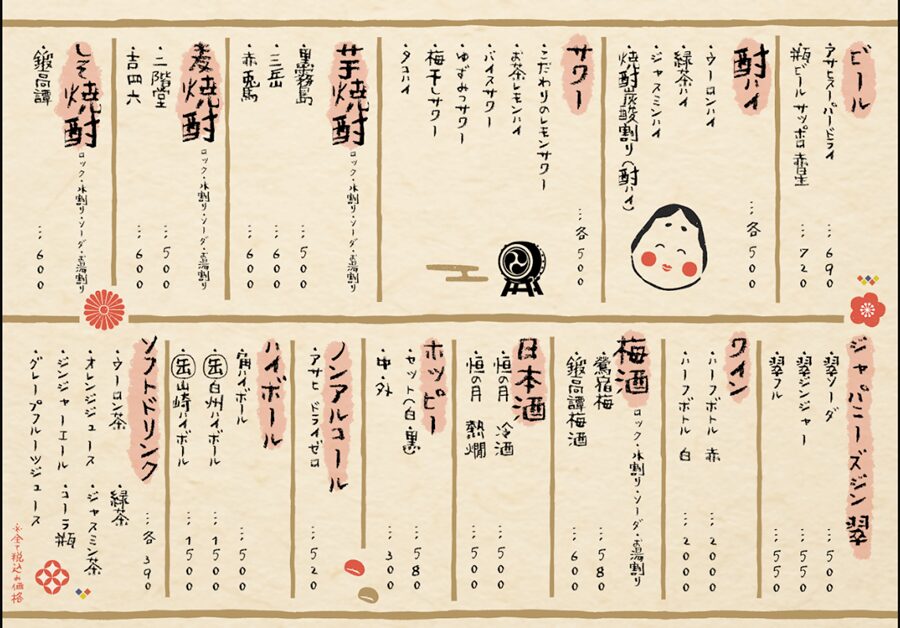 ビール
・アサヒスーパードライ …690
・瓶ビール サッポロ赤星 …720
酎ハイ …各500
・ウーロンハイ
・緑茶ハイ
・ジャスミンハイ
・焼酎炭酸割り(酎ハイ)
サワー …各500
・こだわりのレモンサワー
・お茶レモンハイ
・バイスサワー
・ゆずみつサワー
・梅干しサワー
・タコハイ
芋焼酎 ロック・水割り・ソーダ・お湯割り
・黒霧島 …500
・三岳 …600
・赤兎馬 …600
麦焼酎 ロック・水割り・ソーダ・お湯割り
・二階堂 …500
・吉四六 …600
しそ焼酎 ロック・水割り・ソーダ・お湯割り
・鍛高譚 …600
ジャパニーズジン翠
・翠ソーダ …500
・翠ジンジャー …550
・翠フル …550
ワイン
・ハーフボトル 赤 …2000
・ハーフボトル 白 …2000
梅酒 ロック・水割り・ソーダ・お湯割り
・鶯宿梅 …580
・鍛高譚梅酒 …600
日本酒
・恒の月 冷酒 …500
・恒の月 熱燗 …500
ホッピー
・セット(白・黒) …580
・中・外 …300
ノンアルコール
・アサヒ ドライゼロ …520
ハイボール
・角ハイボール …500
・缶白州ハイボール …1500
・缶山崎ハイボール …1500
ソフトドリンク …各390
・ウーロン茶 ・緑茶
・オレンジジュース ・ジャスミン茶
・ジンジャーエール ・コーラ瓶
・グレープフルーツジュース
※全て税込み価格